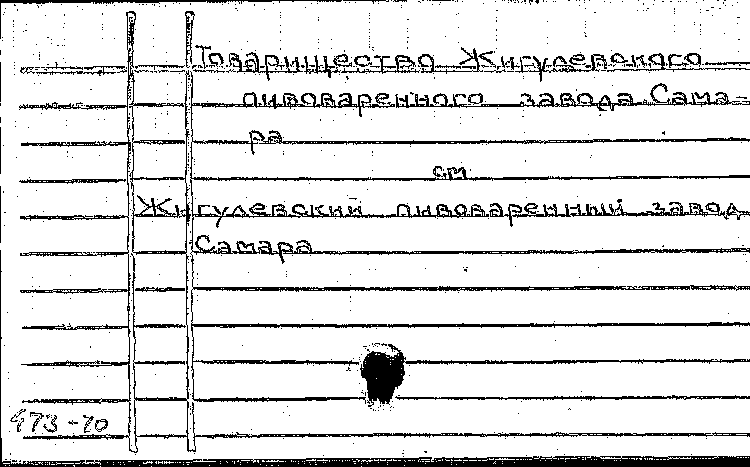 Товарищество Жигулевского
пивоваренного завода Сама-
ра
см
Жигулевский пивоваренный завод
Самара
473-70